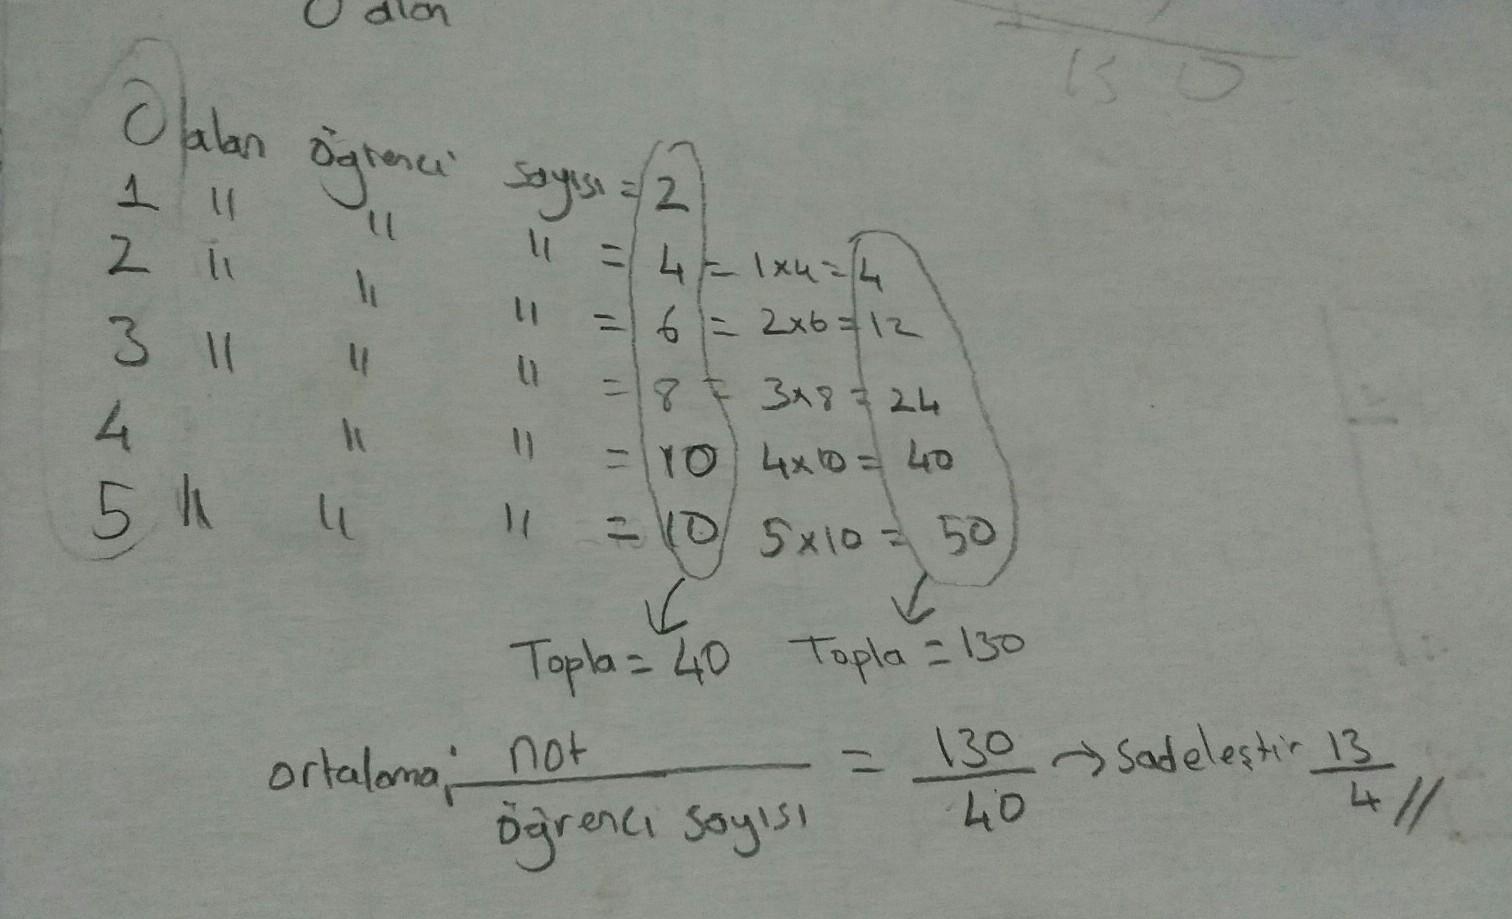 0 alan
130
0 alan öğrenci sayısı = 2
1 " " " = 4 = 1x4 = 4
2 " " " = 6 = 2x6 = 12
3 " " " = 8 = 3x8 = 24
4 " " = 10 4x10 = 40
5 " " " = 10 5x10 = 50
Topla = 40 Topla = 130
ortalama; not / öğrenci sayısı = 130/40 → Sadeleştir 13/4 //